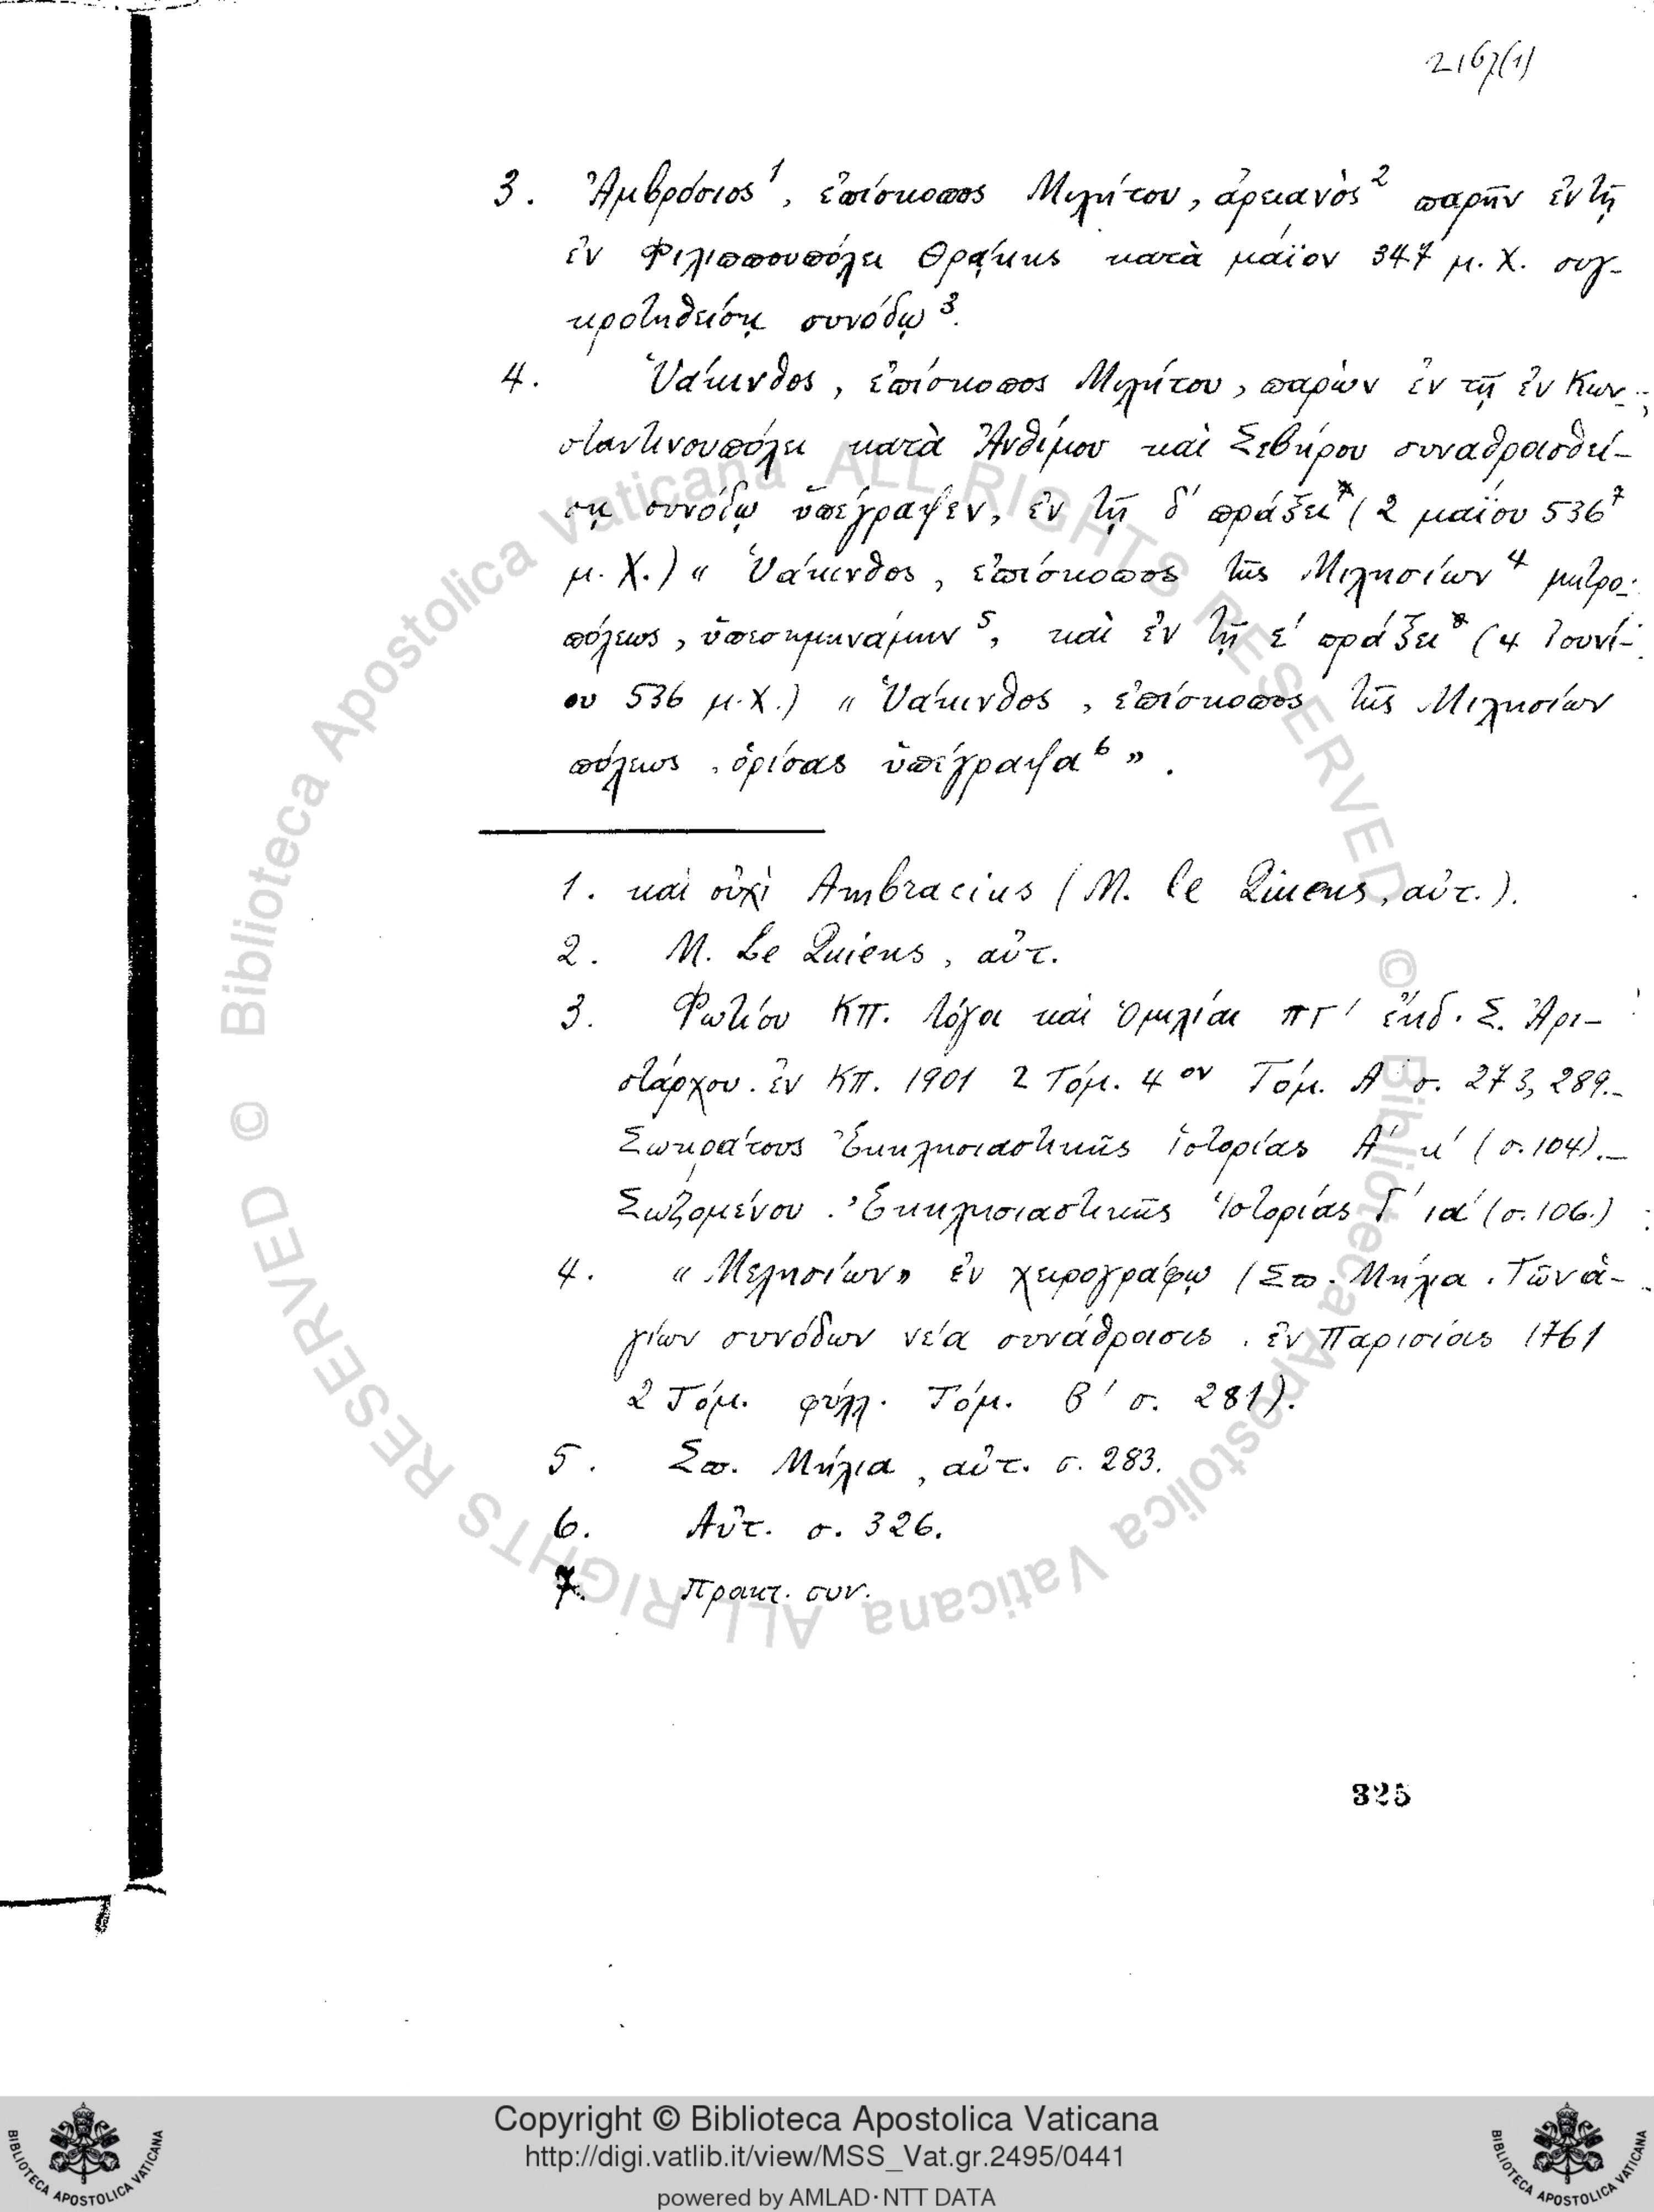 216γ(1)
3. Ἀμβρόσιος¹, ἐπίσκοπος Μιλήτου, ἀρειανὸς² παρῆν ἐν τῇ
ἐν Φιλιππουπόλει Θρᾴκης κατὰ μάϊον 347 μ. Χ. συγ-
κροτηθείσῃ συνόδῳ³.
4. Ὑάκινθος, ἐπίσκοπος Μιλήτου, παρὼν ἐν τῇ ἐν Κων-
σταντινουπόλει κατὰ Ἀνθίμου καὶ Σεβήρου συναθροισθεί-
σῃ συνόδῳ ὑπέγραψεν, ἐν τῇ δ' πράξει (2 μαΐου 536⁷
μ. Χ.) « Ὑάκινθος, ἐπίσκοπος τῆς Μιλησίων⁴ μητρο-
πόλεως, ὑπεσημηνάμην⁵, καὶ ἐν τῇ ε' πράξει (4 Ἰουνί-
ου 536 μ.Χ.) « Ὑάκινθος, ἐπίσκοπος τῆς Μιλησίων
πόλεως, ὁρίσας ὑπέγραψα⁶ » .
1. καὶ οὐχὶ Ambracius (M. le Quiens, αὐτ.).
2. M. Le Quiens, αὐτ.
3. Φωτίου ΚΠ. λόγοι καὶ Ὁμιλίαι ΠΓ' ἔκδ. Σ. Ἀρι-
στάρχου. ἐν ΚΠ. 1901 2 Τόμ. 4ον Τόμ. Α' σ. 273, 289.-
Σωκράτους Ἐκκλησιαστικῆς ἱστορίας Α' κ' (σ. 104).-
Σωζομένου. Ἐκκλησιαστικῆς Ἱστορίας Γ' ια' (σ. 106.)
4. « Μελησίων» ἐν χειρογράφῳ (Σπ. Μήλια. Τῶν ἁ-
γίων συνόδων νέα συνάθροισις. ἐν Παρισίοις 1761
2 Τόμ. φύλλ. Τόμ. Β' σ. 281).
5. Σπ. Μήλια, αὐτ. σ. 283.
6. Αὐτ. σ. 326.
7. Πρακτ. συν.
325
© Biblioteca Apostolica Vaticana ALL RIGHTS RESERVED © Biblioteca Apostolica Vaticana ALL RIGHTS RESERVED
BIBLIOTECA APOSTOLICA VATICANA
Copyright © Biblioteca Apostolica Vaticana
http://digi.vatlib.it/view/MSS_Vat.gr.2495/0441
powered by AMLAD·NTT DATA
BIBLIOTECA APOSTOLICA VATICANA